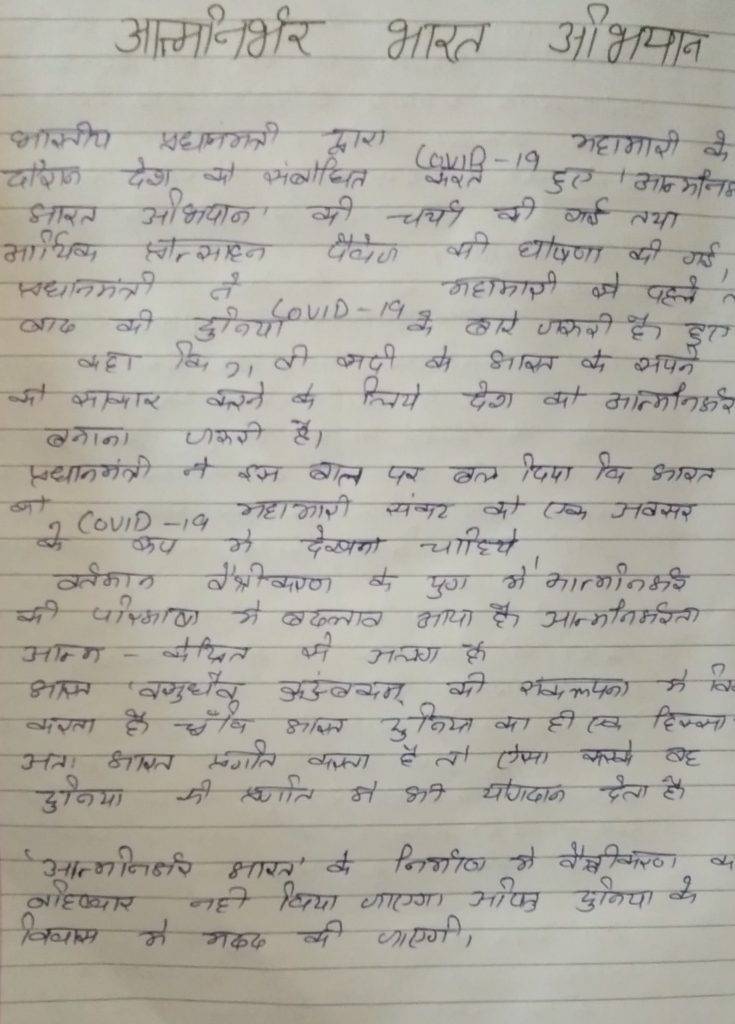 आत्मनिर्भर भारत अभियान
भारतीय प्रधानमंत्री द्वारा COVID-19 महामारी के
दौरान देश को संबोधित करते हुए 'आत्मनिर्भर
भारत अभियान' की चर्चा की गई तथा
आर्थिक प्रोत्साहन पैकेज की घोषणा की गई,
प्रधानमंत्री ने COVID-19 महामारी से पहले
बाद की दुनिया के बारे जरूरी है। हुए
कहा कि 21 वी सदी के भारत के सपने
को साकार करने के लिये देश को आत्मनिर्भर
बनाना जरूरी है।
प्रधानमंत्री ने इस बात पर बल दिया कि भारत
को COVID-19 महामारी संकट को एक अवसर
के रूप में देखना चाहिये
वर्तमान वैश्वीकरण के युग में 'आत्मनिर्भर
की परिभाषा में बदलाव आया है। आत्मनिर्भरता
आत्म - केंद्रित से अलग है
भारत 'वसुधैव कुटुंबकम् की संकल्पना में
करता है चूँकि भारत दुनिया का ही एक हिस्सा
अतः भारत प्रगति करता है तो ऐसा करके वह
दुनिया की प्रगति में भी योगदान देता है
'आत्मनिर्भर भारत' के निर्माण में वैश्वीकरण का
बहिष्कार नही किया जाएगा अपितु दुनिया के
विकास में मदद की जाएगी,